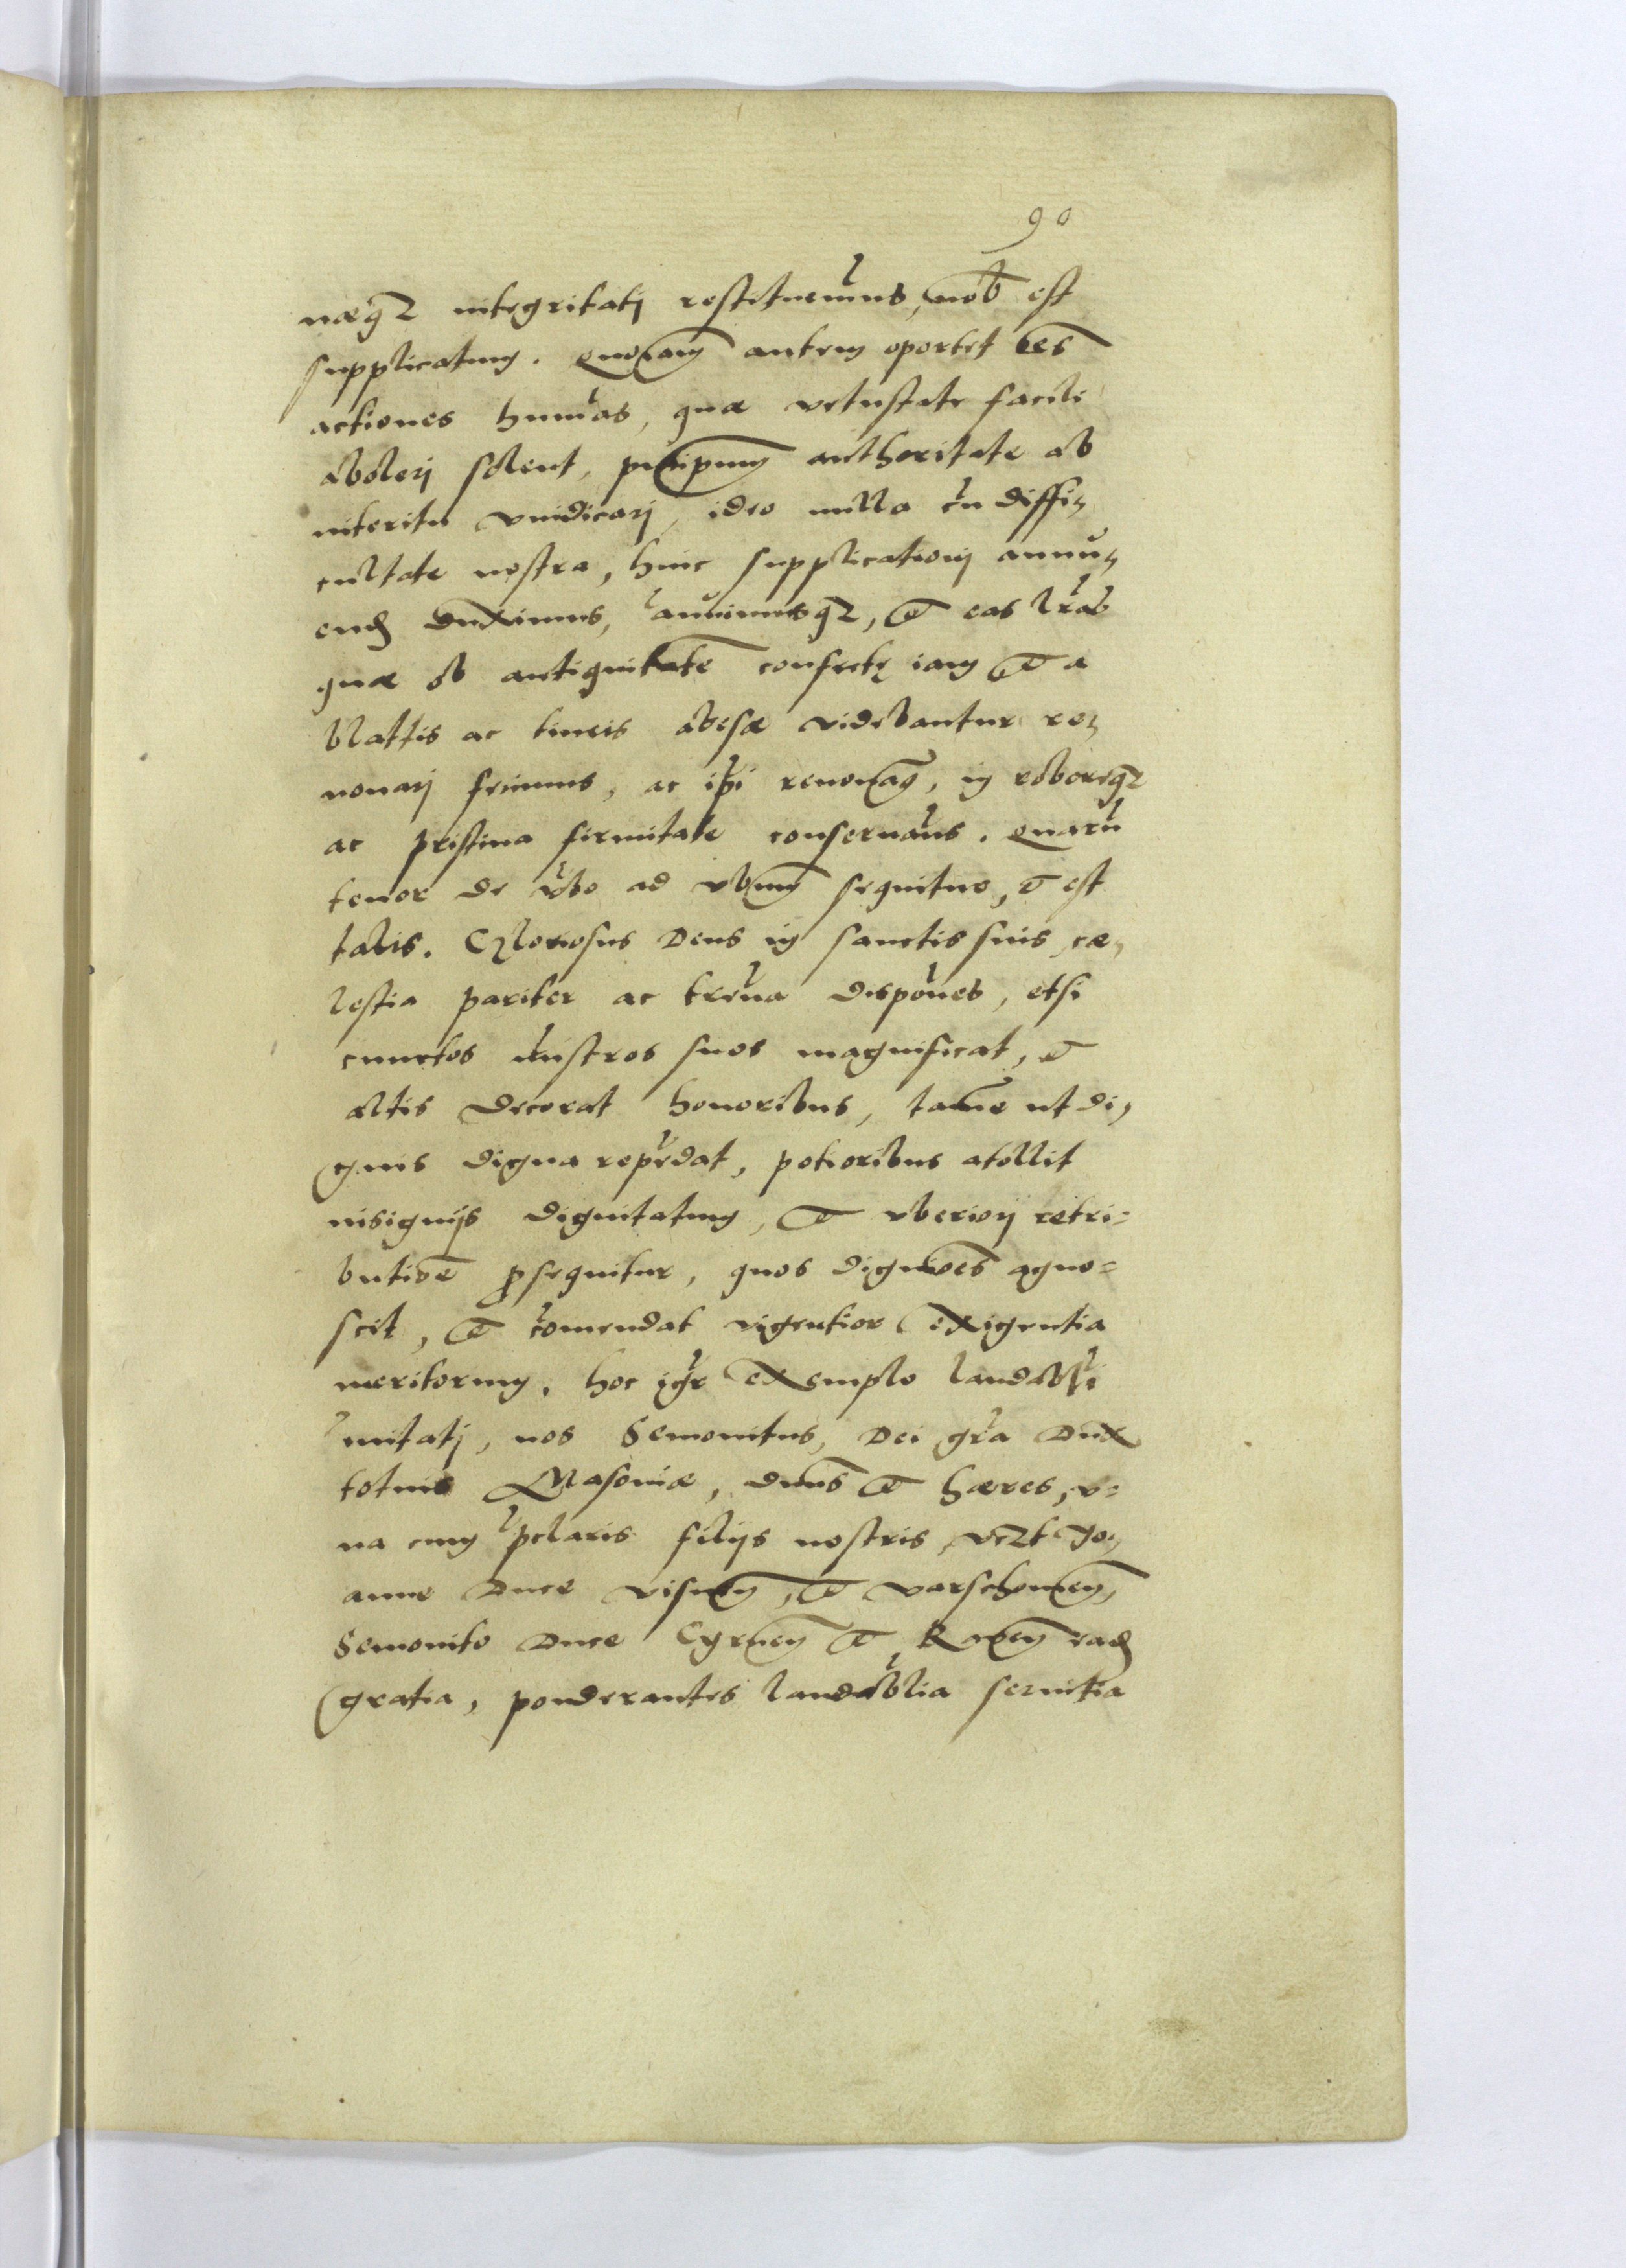 90
næq3 integritatj restituerimus, nob est
supplicatum. Quoniam autem oportet oes
actiones humas, quæ vetustate facile
abolerj solent, principum authoritate ab
interitu vindicarj, ideo nulla cu diffi,
cultate nostra, huic supplicationj annu,
end duximus, annuimusq3, et eas lras
quæ ob antiquitate confectę iam et a
blattis ac tineis abesæ videbantur re,
nouarj fecimus, ac ipi renouam, in roboreq3
ac pristina firmitate conseruaus. Quaru
tenor de vbo ad vbum sequitur, et est
talis. Gloriosus Deus in sanctis suis cæ,
lestia pariter ac trena dispones, etsi
cunctos iustros suos magnificat, et
altis decorat honoribus, tame ut di,
gnis digna repedat, potioribus atollit
insignijs dignitatum, et vberiorj retri=
butioe prosequitur, quos digniores agno=
scit, et comendat vigentior exigentia
meritorum. Hoc igr exemplo laudabli
initatj, nos Semouitus, Dei gra Dux
totius Masoviæ, dnus et hæres, v=
na cum pclaris filijs nostris, vczt Jo,
anne Duce Visnen, et Varschouien,
Semouito Duce Cyrnen et Rauen eadem
gratia, ponderantes laudablia seruitia